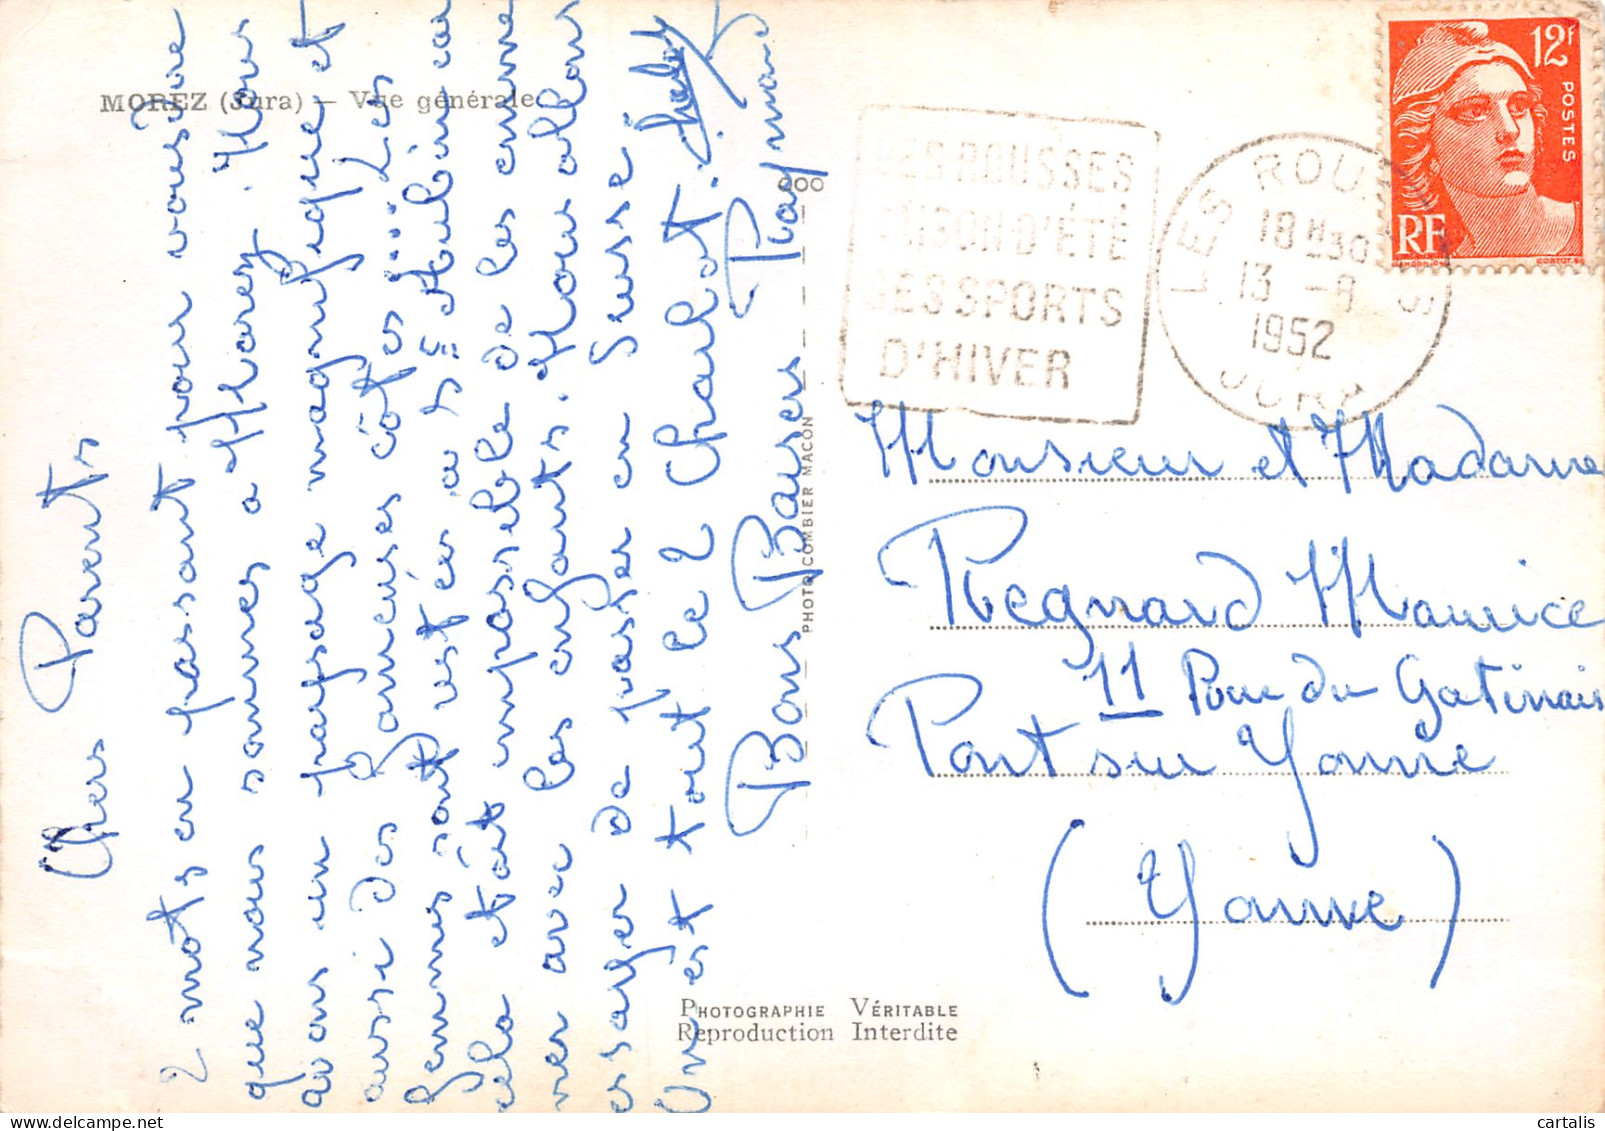 MOREZ (Jura) — Vue générale
Chers Parents
2 mots en passant pour vous dire
que nous sommes a Morez. Nous
avons un paysage magnifique et
aussi des fameuses côtes .... Les
femmes sont restées a St Aubin car
cela etait impossible de les emme
ner avec les enfants. Nous allons
essayer de passer en Suisse
On est tout le 2 Charlot.
Bons Baisers Raymond
PHOTO COMBIER MACON
LES ROUSSES
SAISON D'ÉTÉ
SES SPORTS
D'HIVER
LES ROUSSES
18 H30
13 -8
1952
JURA
12F
POSTES
RF
Monsieur et Madame
Regnard Maurice
11 Rue du Gatinais
Pont sur Yonne
(Yonne)
PHOTOGRAPHIE VÉRITABLE
Reproduction Interdite
cartalis